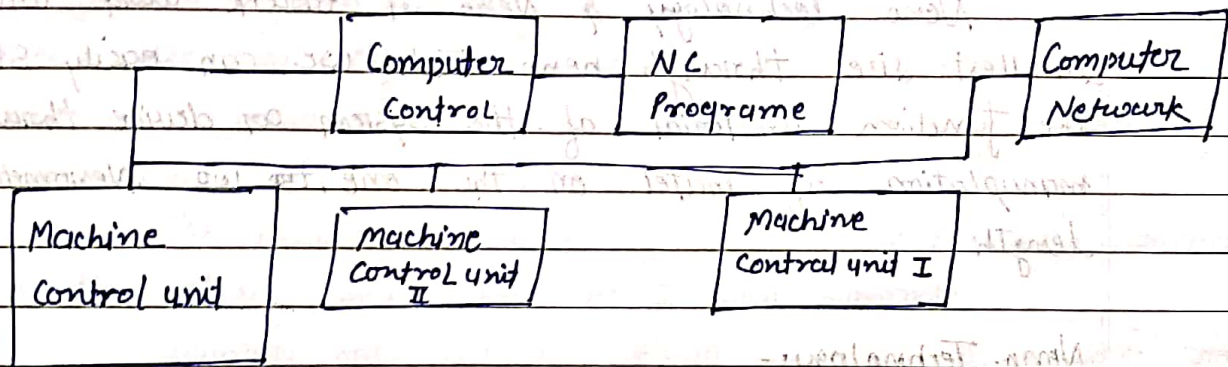 Computer
Control
NC
Programe
Computer
Network
Machine
Control unit
Machine
Control unit
II
Machine
Control unit I